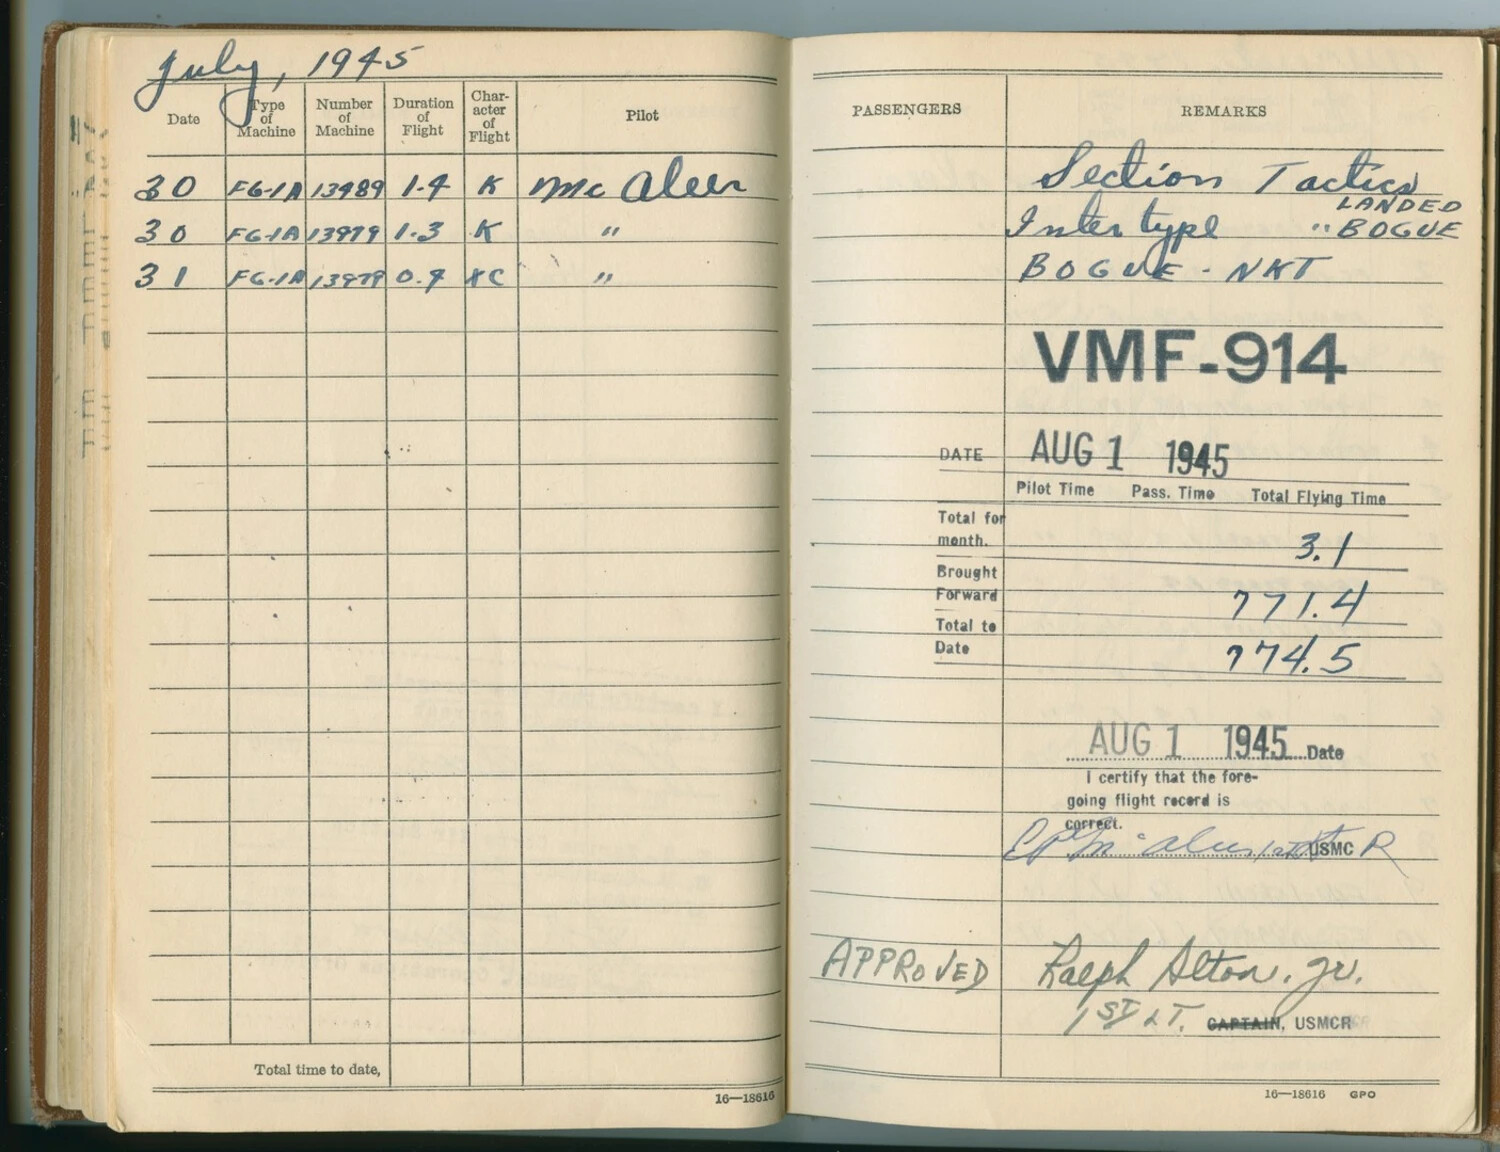 July, 1945
Date Type of Machine Number of Machine Duration of Flight Char-acter of Flight Pilot
30 FG-1A 13489 1.4 K McAleer
30 FG-1A 13979 1.3 K "
31 FG-1A 13979 0.4 XC "
Total time to date,
16—18616
PASSENGERS REMARKS
Section Tactics
LANDED
Intertype " BOGUE
BOGUE - NKT
VMF-914
DATE AUG 1 1945
Pilot Time Pass. Time Total Flying Time
Total for
month. 3.1
Brought
Forward 771.4
Total to
Date 774.5
AUG 1 1945 Date
I certify that the fore-
going flight record is
correct.
USMC R
APPROVED Ralph Alton, Jr.
1ST LT. CAPTAIN, USMCR
16—18616 GPO